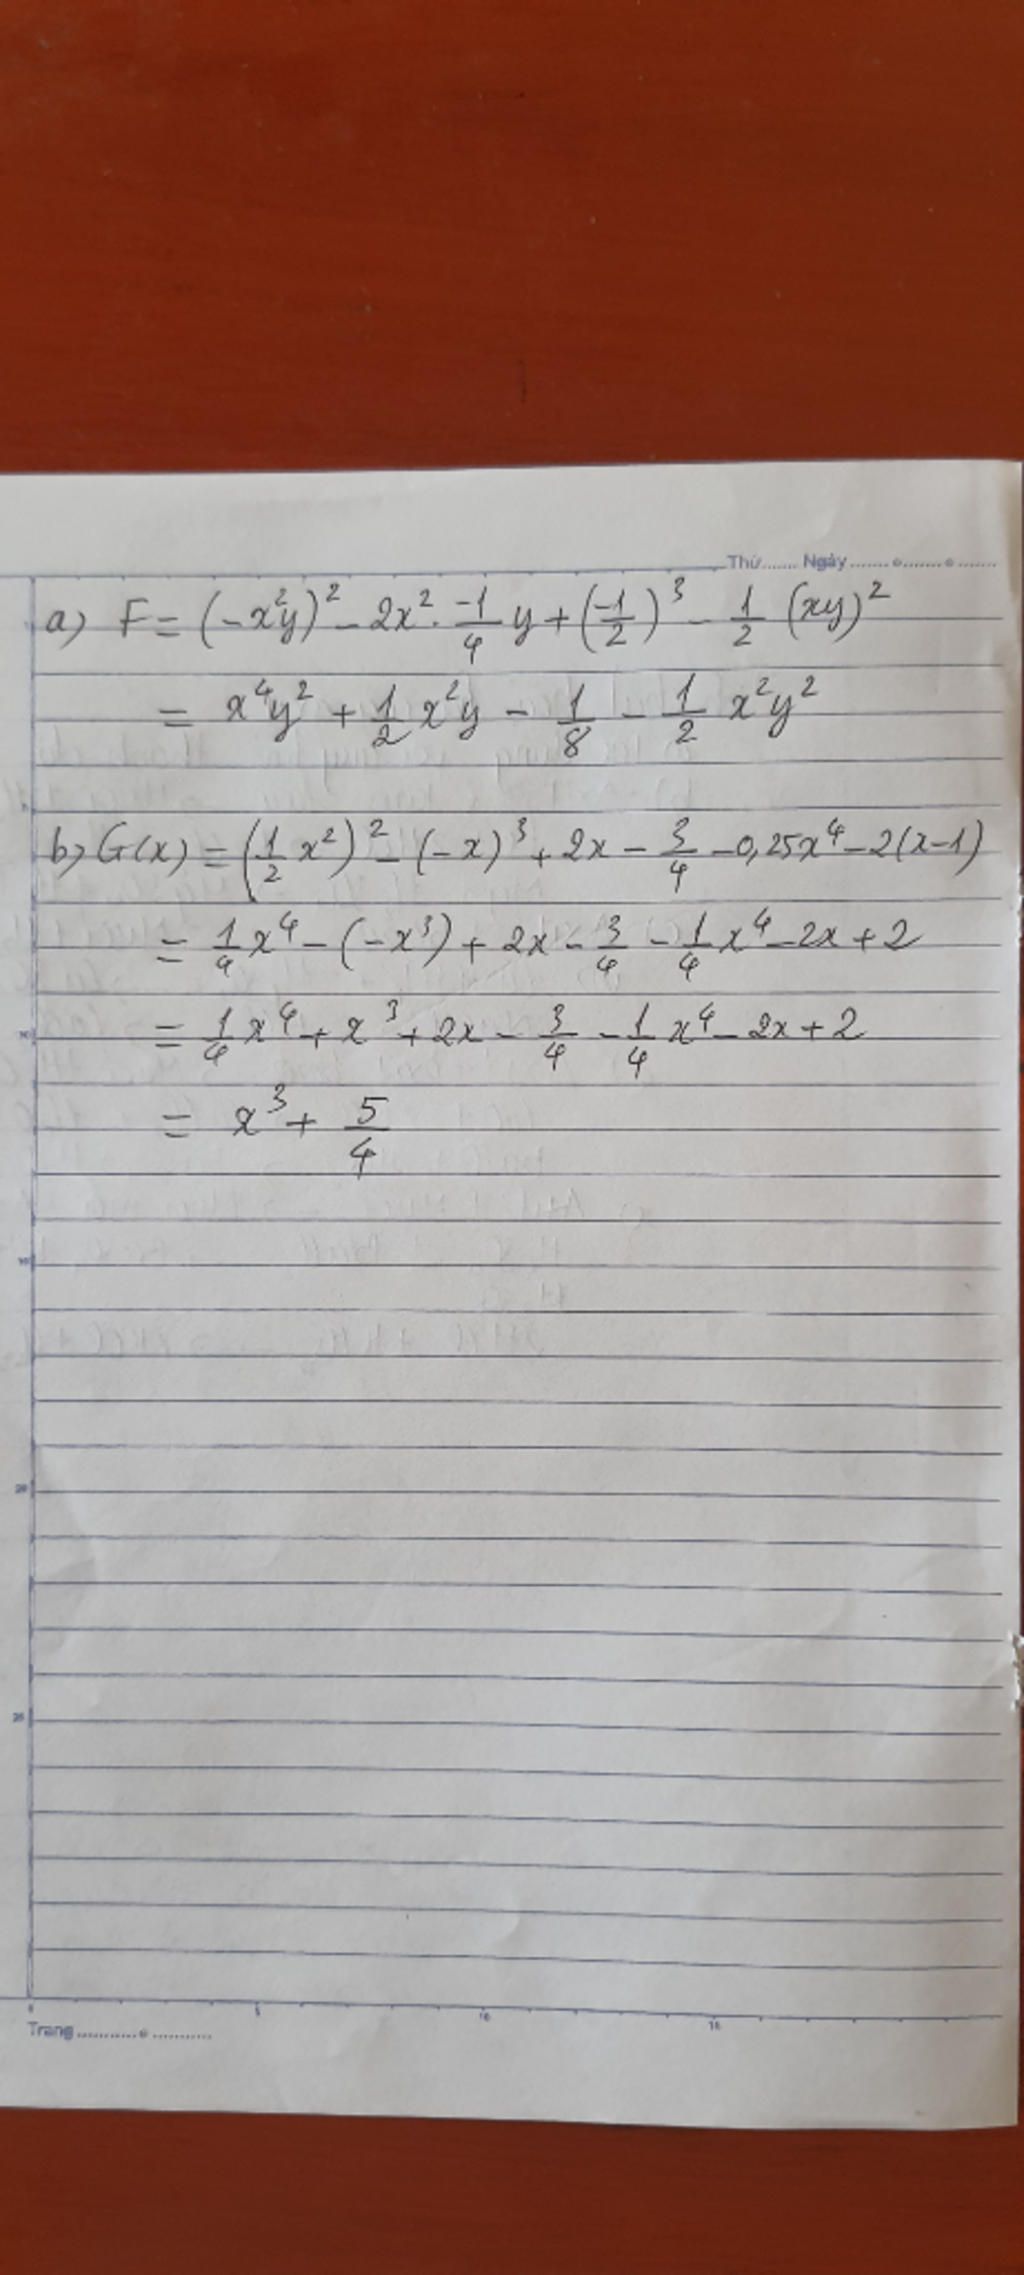 Thứ....... Ngày.......
a) F = (-x²y)² - 2x² . -1/4 y + (-1/2)³ - 1/2 (xy)²
= x⁴y² + 1/2 x²y - 1/8 - 1/2 x²y²
b) G(x) = (1/2 x²)² - (-x)³ + 2x - 3/4 - 0,25x⁴ - 2(x-1)
= 1/4 x⁴ - (-x³) + 2x - 3/4 - 1/4 x⁴ - 2x + 2
= 1/4 x⁴ + x³ + 2x - 3/4 - 1/4 x⁴ - 2x + 2
= x³ + 5/4
Trang